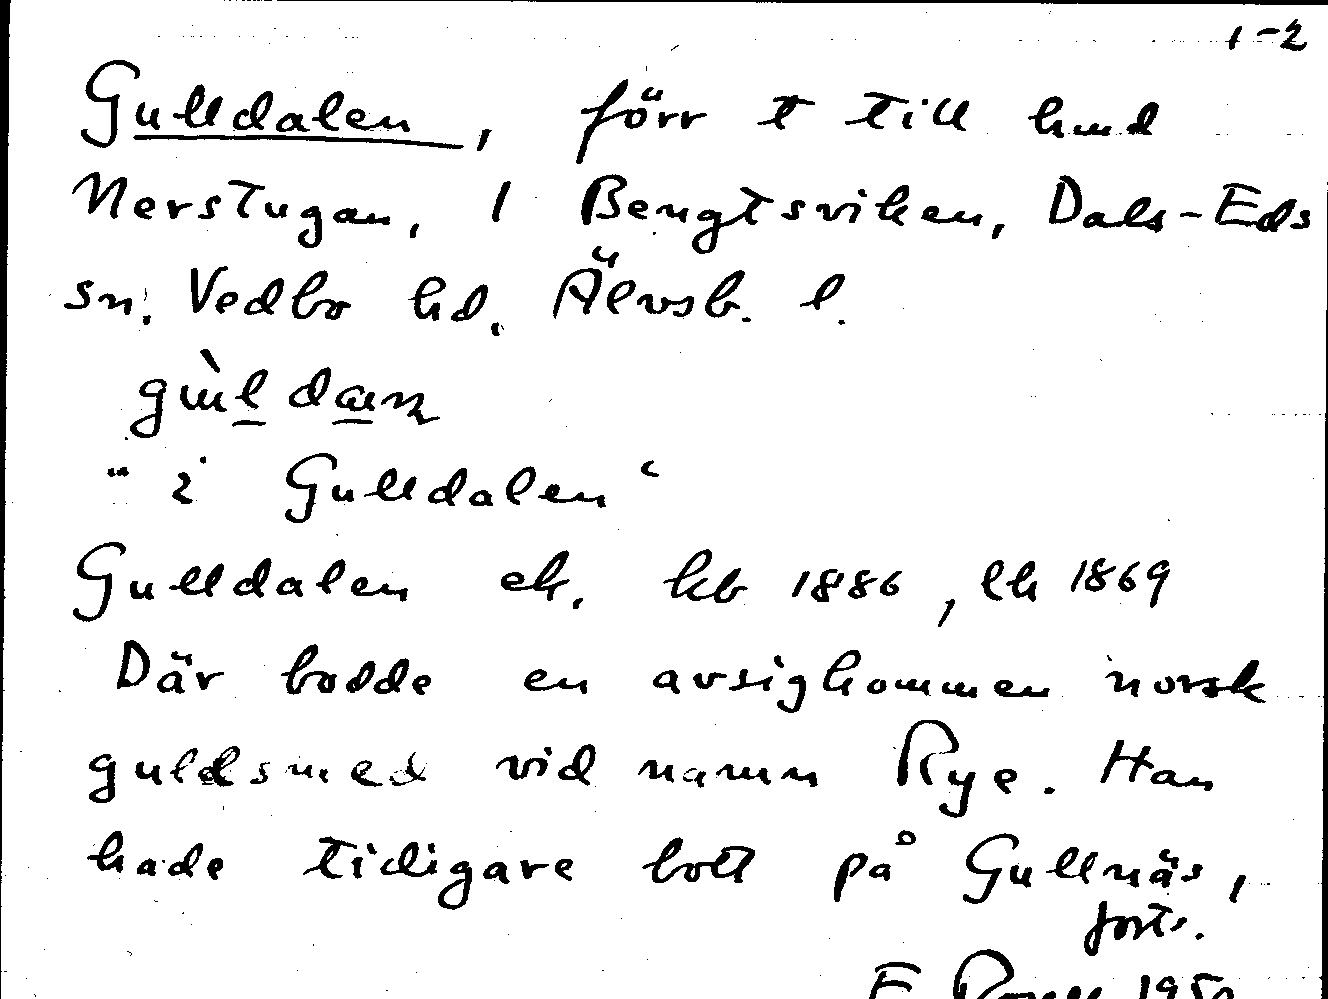 1-2
Gulldalen, förr t till hmd
Nerstugan, 1 Bengtsviken, Dals-Eds
sn. Vedbo hd. Älvsb. l.
"i Gulldalen"
Gulldalen ek. kb 1886, lh 1869
Där bodde en avsigkommen norsk
guldsmed vid namn Rye. Han
hade tidigare bott på Gullnäs,
forts.